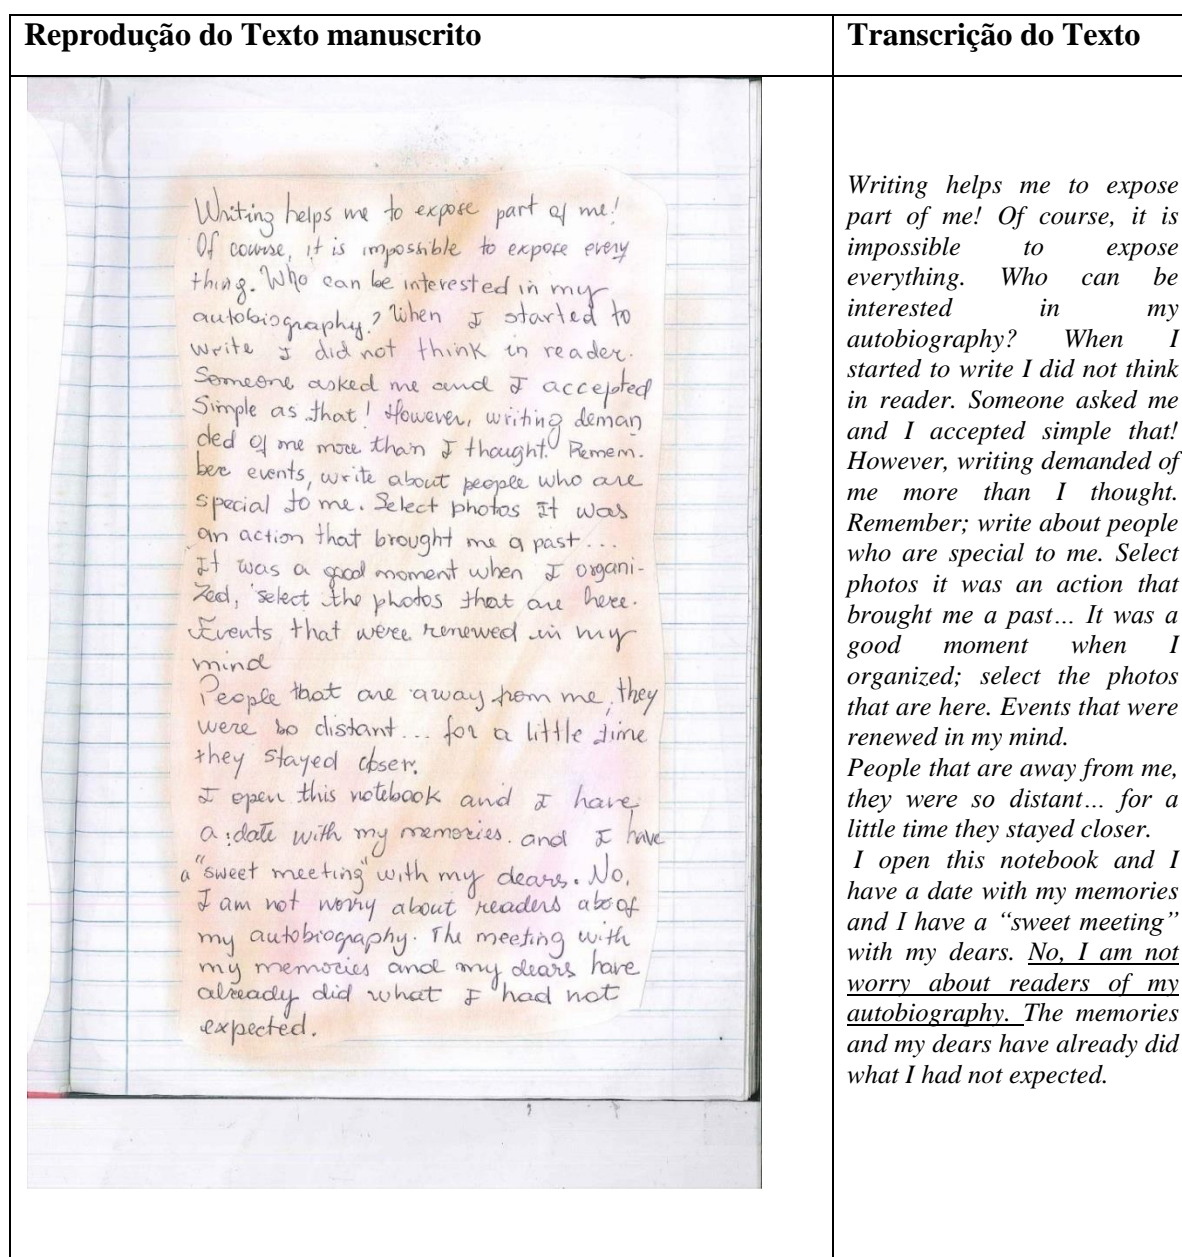 Reprodução do Texto manuscrito
Transcrição do Texto
Writing helps me to expose part of me!
Of course, it is impossible to expose every
thing. Who can be interested in my
autobiography? When I started to
write I did not think in reader.
Someone asked me and I accepted
Simple as that! However, writing deman
ded of me more than I thought. Remem-
ber events, write about people who are
special to me. Select photos It was
an action that brought me a past...
It was a good moment when I organi-
zed, select the photos that are here.
Events that were renewed in my
mind
People that are away from me, they
were so distant... for a little time
they stayed closer.
I open this notebook and I have
a date with my memories. and I have
a "sweet meeting" with my dears. No,
I am not worry about readers of
my autobiography. The meeting with
my memories and my dears have
already did what I had not
expected.
Writing helps me to expose
part of me! Of course, it is
impossible to expose
everything. Who can be
interested in my
autobiography? When I
started to write I did not think
in reader. Someone asked me
and I accepted simple that!
However, writing demanded of
me more than I thought.
Remember; write about people
who are special to me. Select
photos it was an action that
brought me a past… It was a
good moment when I
organized; select the photos
that are here. Events that were
renewed in my mind.
People that are away from me,
they were so distant… for a
little time they stayed closer.
I open this notebook and I
have a date with my memories
and I have a “sweet meeting”
with my dears. No, I am not
worry about readers of my
autobiography. The memories
and my dears have already did
what I had not expected.